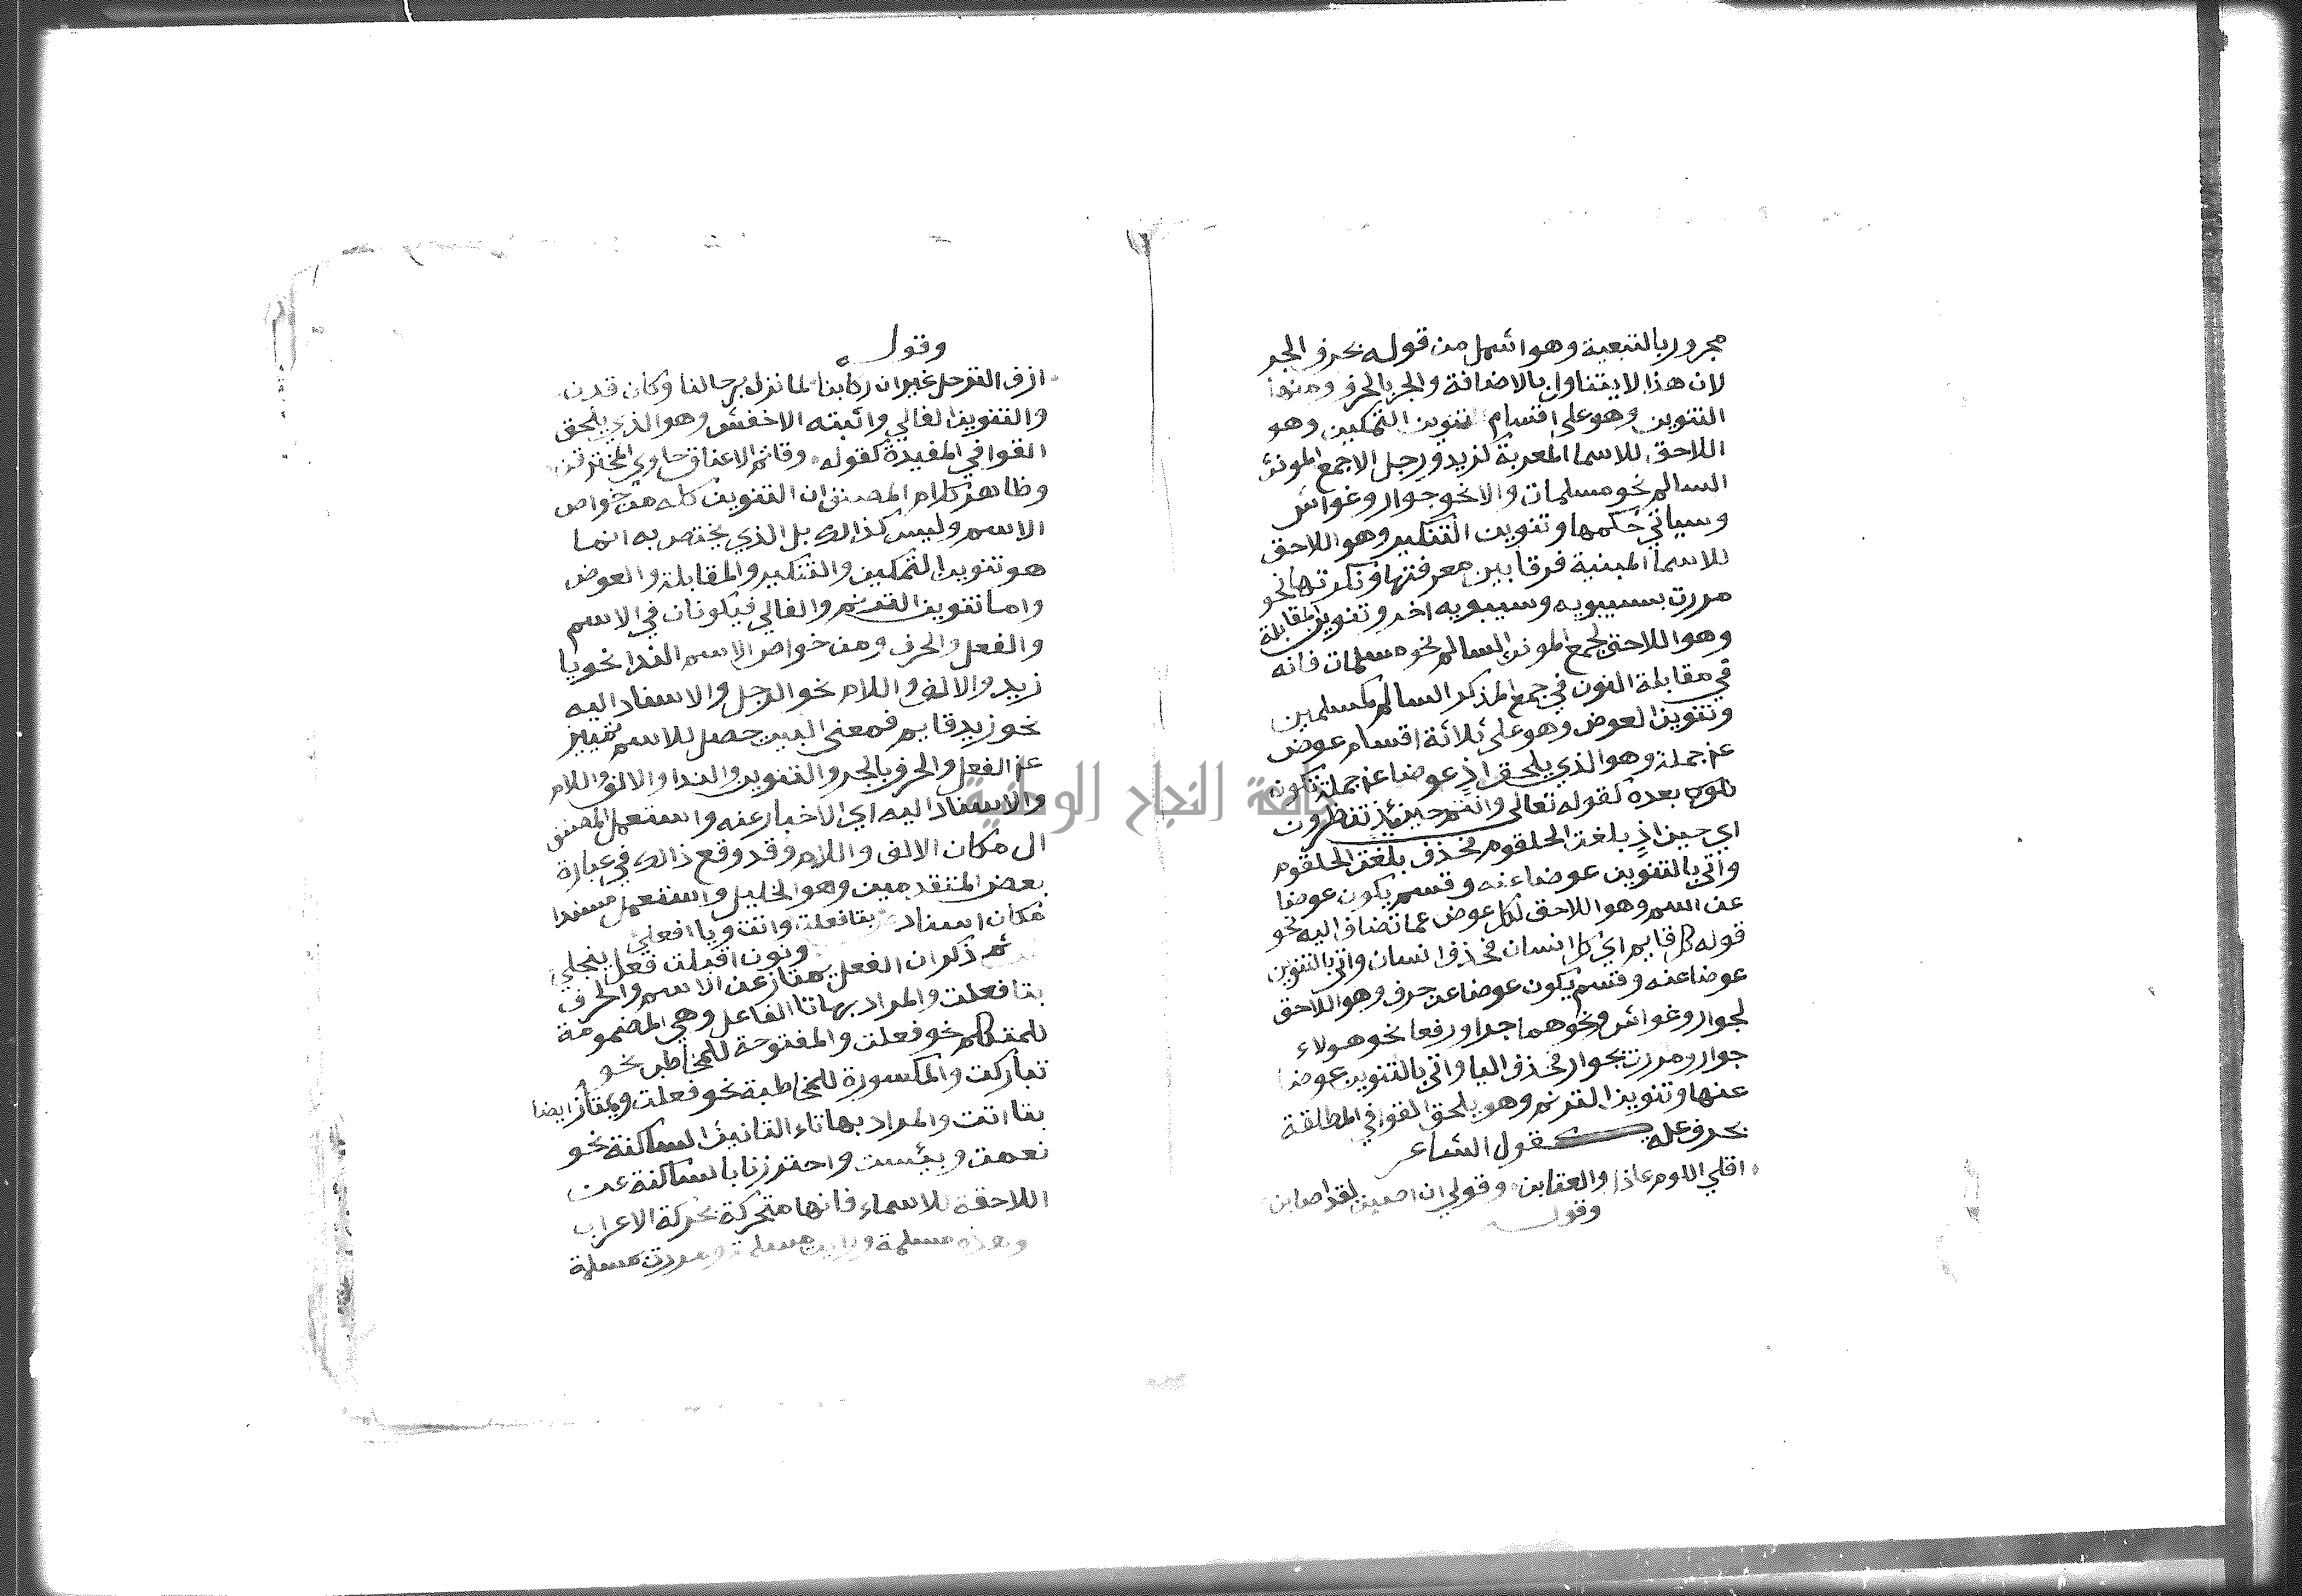 مجرور بالتبعية وهو اشمل من قوله بحرف الجر
لان هذا لا يتناول بالاضافة والجر بالحرف ومنها
التنوين وهو على اقسام تنوين التمكين وهو
اللاحق للاسما المعربة كزيد ورجل الا جمع المونث
السالم نحو مسلمات والا نحو جوار وغواش
وسياتي حكمها وتنوين التنكير وهو اللاحق
للاسما المبنية فرقا بين معرفتها ونكرتها نحو
مررت بسيبويه وسيبويه اخر وتنوين المقابلة
وهو اللاحق لجمع المونث السالم نحو مسلمات فانه
في مقابلة النون في جمع المذكر السالم كمسلمين
وتنوين العوض وهو على ثلاثة اقسام عوض
عن جملة وهو الذي يلحق اذ عوضا عن جملة تكون
تكون بعده كقوله تعالى وانتم حينئذ تنظرون
اي حين اذ بلغت الحلقوم فحذف بلغت الحلقوم
واتى بالتنوين عوضا عنه وقسم يكون عوضا
عن اسم وهو اللاحق لكل عوض عما تضاف اليه نحو
قوله كل قايم اي كل انسان فحذف انسان واتى بالتنوين
عوضا عنه وقسم يكون عوضا عن حرف وهو اللاحق
لجوار وغواش ونحوهما جرا ورفعا نحو هولاء
جوار ومررت بجوار فحذف اليا واتى بالتنوين عوضا
عنها وتنوين الترنم وهو يلحق القوافي المطلقة
بحرف علة كقول الشاعر
اقلي اللوم عاذل والعتابن وقولي ان اصبت لقد اصابن
وقوله
وقوله
ازف الترحل غير ان ركابنا لما تزل برحالنا وكان قدن
والتنوين الغالي واثبته الاخفش وهو الذي يلحق
القوافي المقيدة كقوله وقاتم الاعناق خاوي المخترقن
وظاهر كلام المصنف ان التنوين كله من خواص
الاسم وليس كذالك بل الذي يختص به انما
هو تنوين التمكين والتنكير والمقابلة والعوض
واما تنوين الترنم والغالي فيكونان في الاسم
والفعل والحرف ومن خواص الاسم الندا نحو يا
زيد والالف واللام نحو الرجل والاسناد اليه
نحو زيد قايم فمعنى البيت حصل للاسم تمييز
عن الفعل والحرف بالجر والتنوين والندا والالف واللام
والاسناد اليه اي الاخبار عنه واستعمل المصنف
ال مكان الالف واللام وقد وقع ذالك في عبارة
بعض المتقدمين وهو الخليل واستعمل مسندا
مكان اسناد بتا فعلت واتت ويا افعلي
ونون اقبلن فعل ينجلي
ثم ذكر ان الفعل يمتاز عن الاسم والحرف
بتا فعلت والمراد بها تا الفاعل وهي المضمومة
للمتكلم نحو فعلت والمفتوحة للمخاطب نحو
تباركت والمكسورة للمخاطبة نحو فعلت ويمتاز ايضا
بتا اتت والمراد بها تاء التانيث الساكنة نحو
نعمت وبئست واحترزنا بالساكنة عن
اللاحقة للاسماء فانها متحركة بحركة الاعراب
وهذه مسلمة ورايت مسلمة ومررت بمسلمة
جامعة النجاح الوطنية